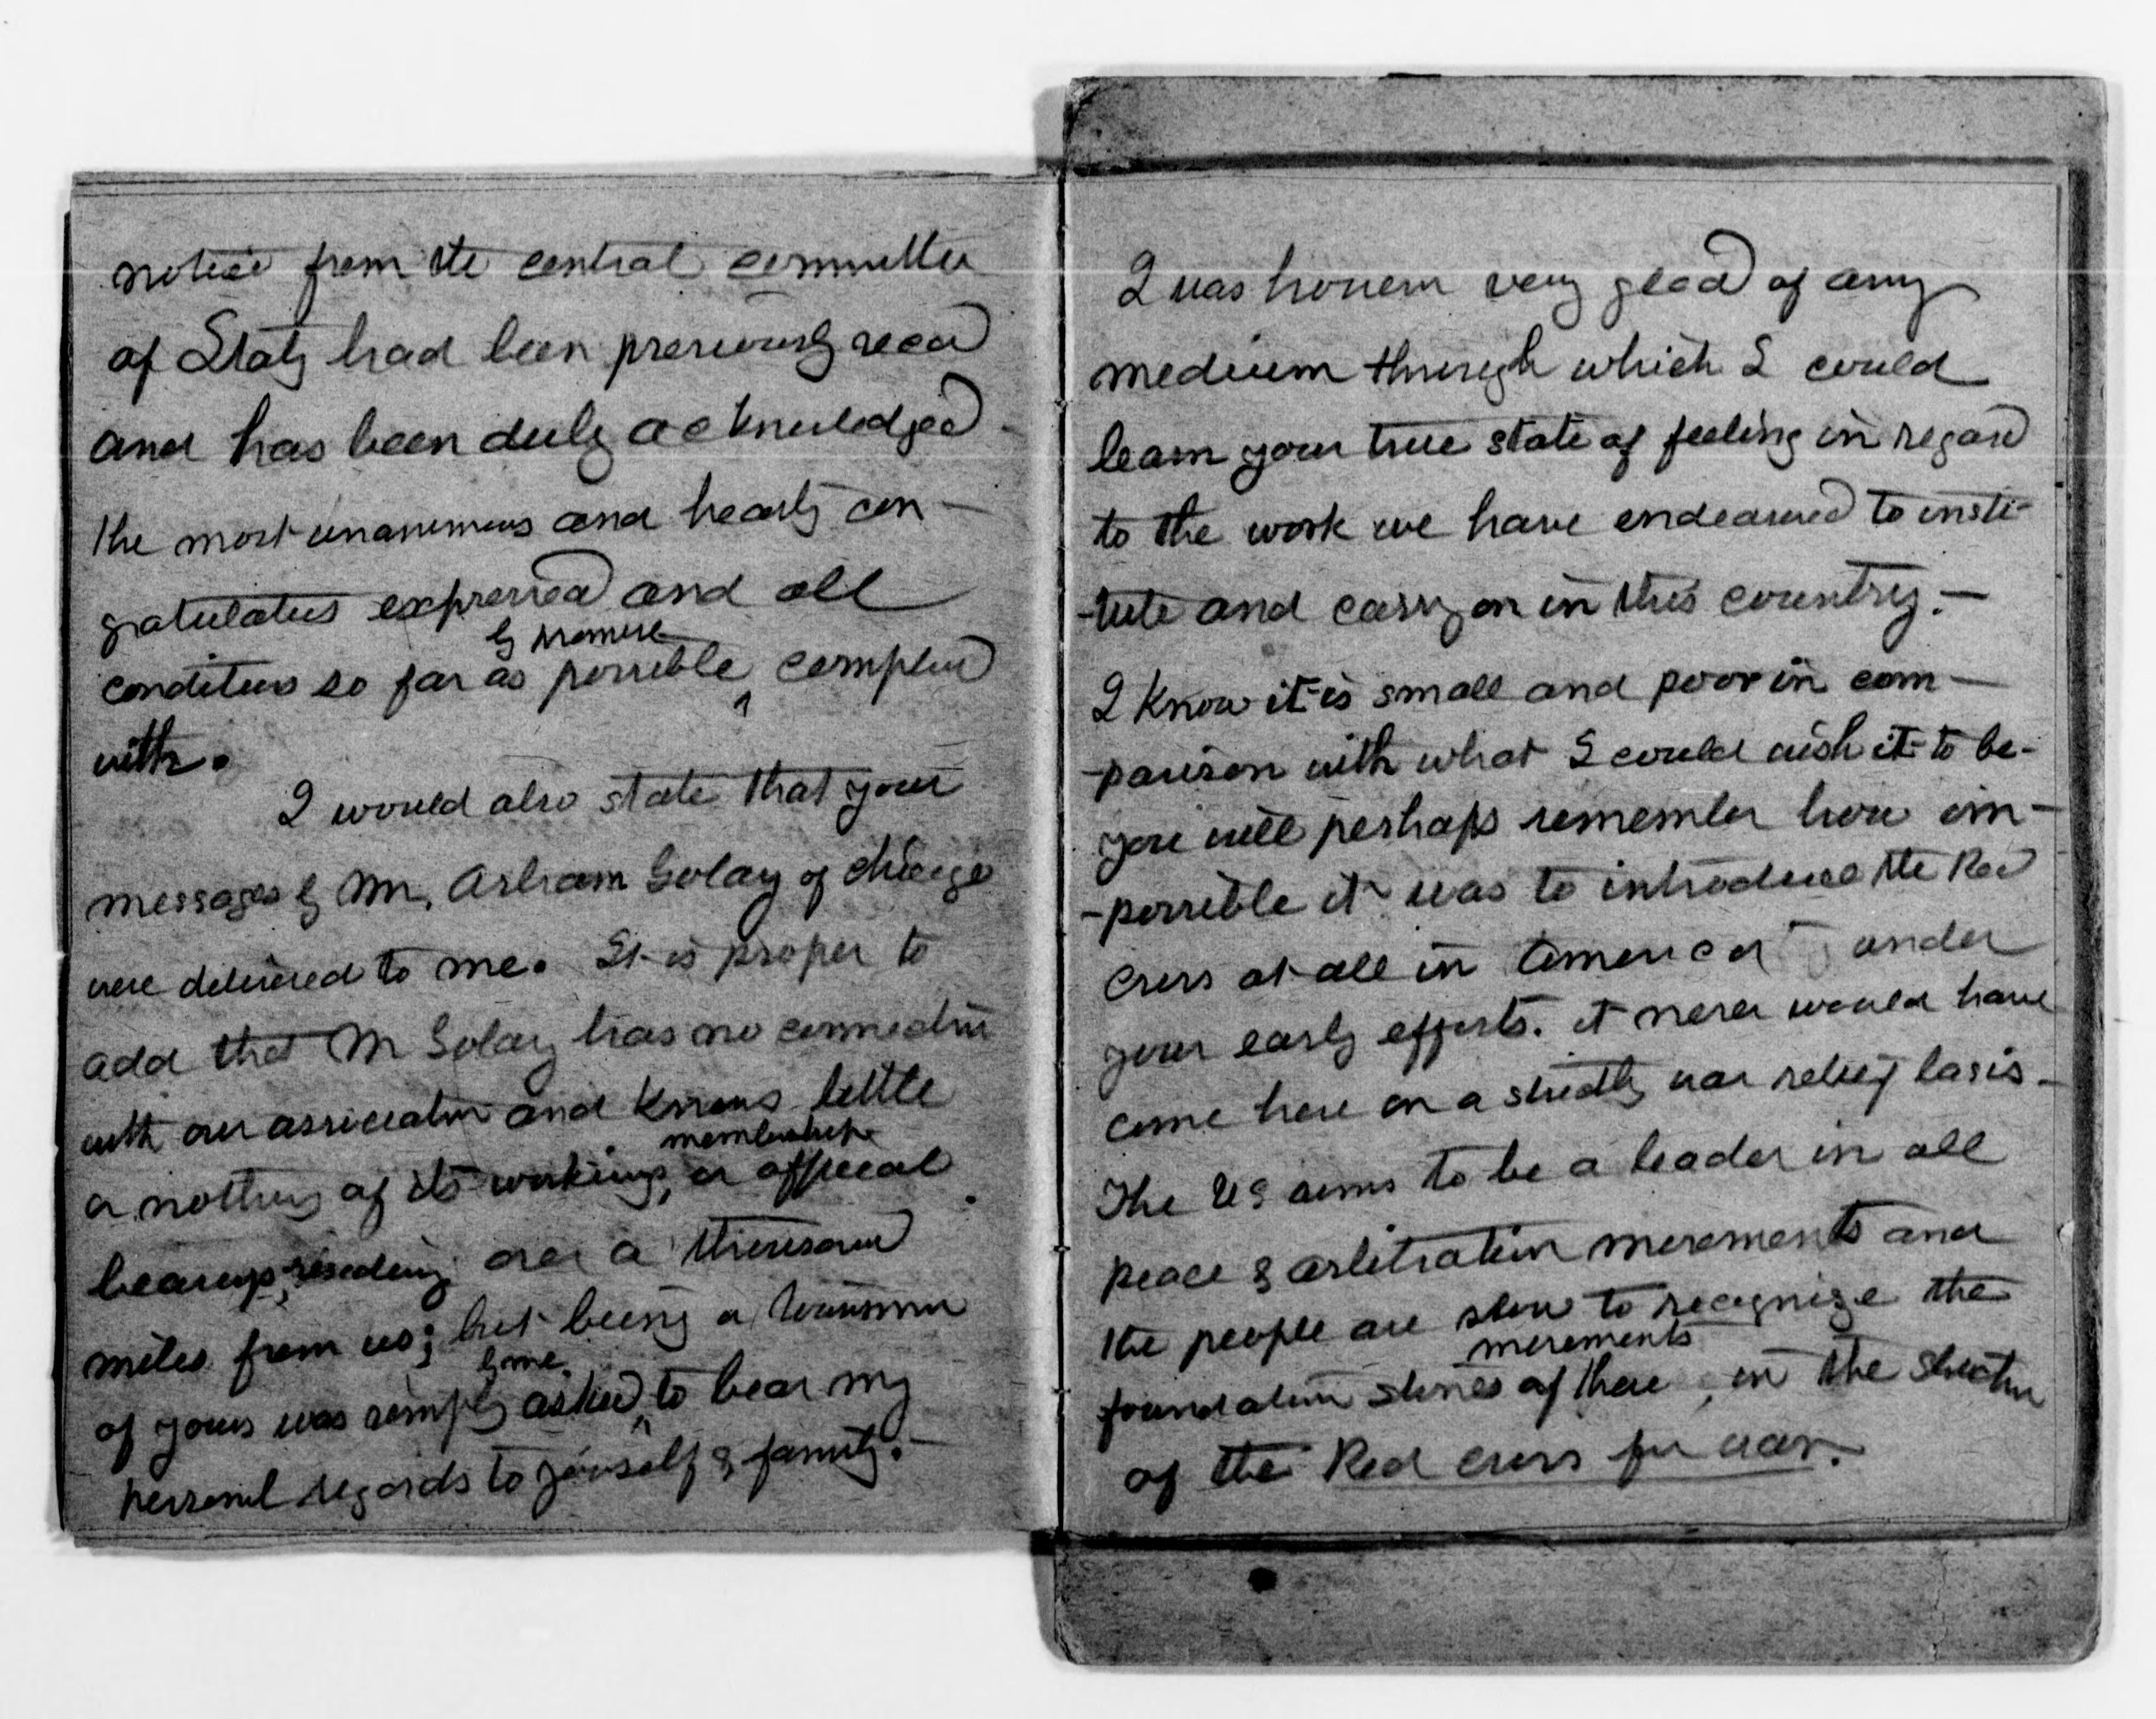 notice from the central committee
of Italy had been previously recd
and has been duly acknowledged -
the most unanimous and hearty con -
gratulations expressed and all
by promise
conditions so far as possible ^ complied
with.
I would also state that your
messages by Mr. Abram Golay of Chicago
were delivered to me. It is proper to
add that Mr Golay has no connection
with our association and knows little
membership
or nothing of its workings, or official
bearings, residing over a thousand
miles from us; but being a townsman
by me
of yours was simply asked ^ to bear my
personal regards to yourself & family. -
I was however very glad of any
medium through which I could
learn your true state of feeling in regard
to the work we have endeavored to insti-
-tute and carry on in this country. -
I know it is small and poor in com -
-parison with what I could wish it to be -
you will perhaps remember how im -
-possible it was to introduce the Red
Cross at all in America under
your early efforts. it never would have
come here on a strictly war relief basis -
The US aims to be a leader in all
peace & arbitration movements and
the people are slow to recognize the
movements
foundation stones of these , in the
of the Red Cross for war.